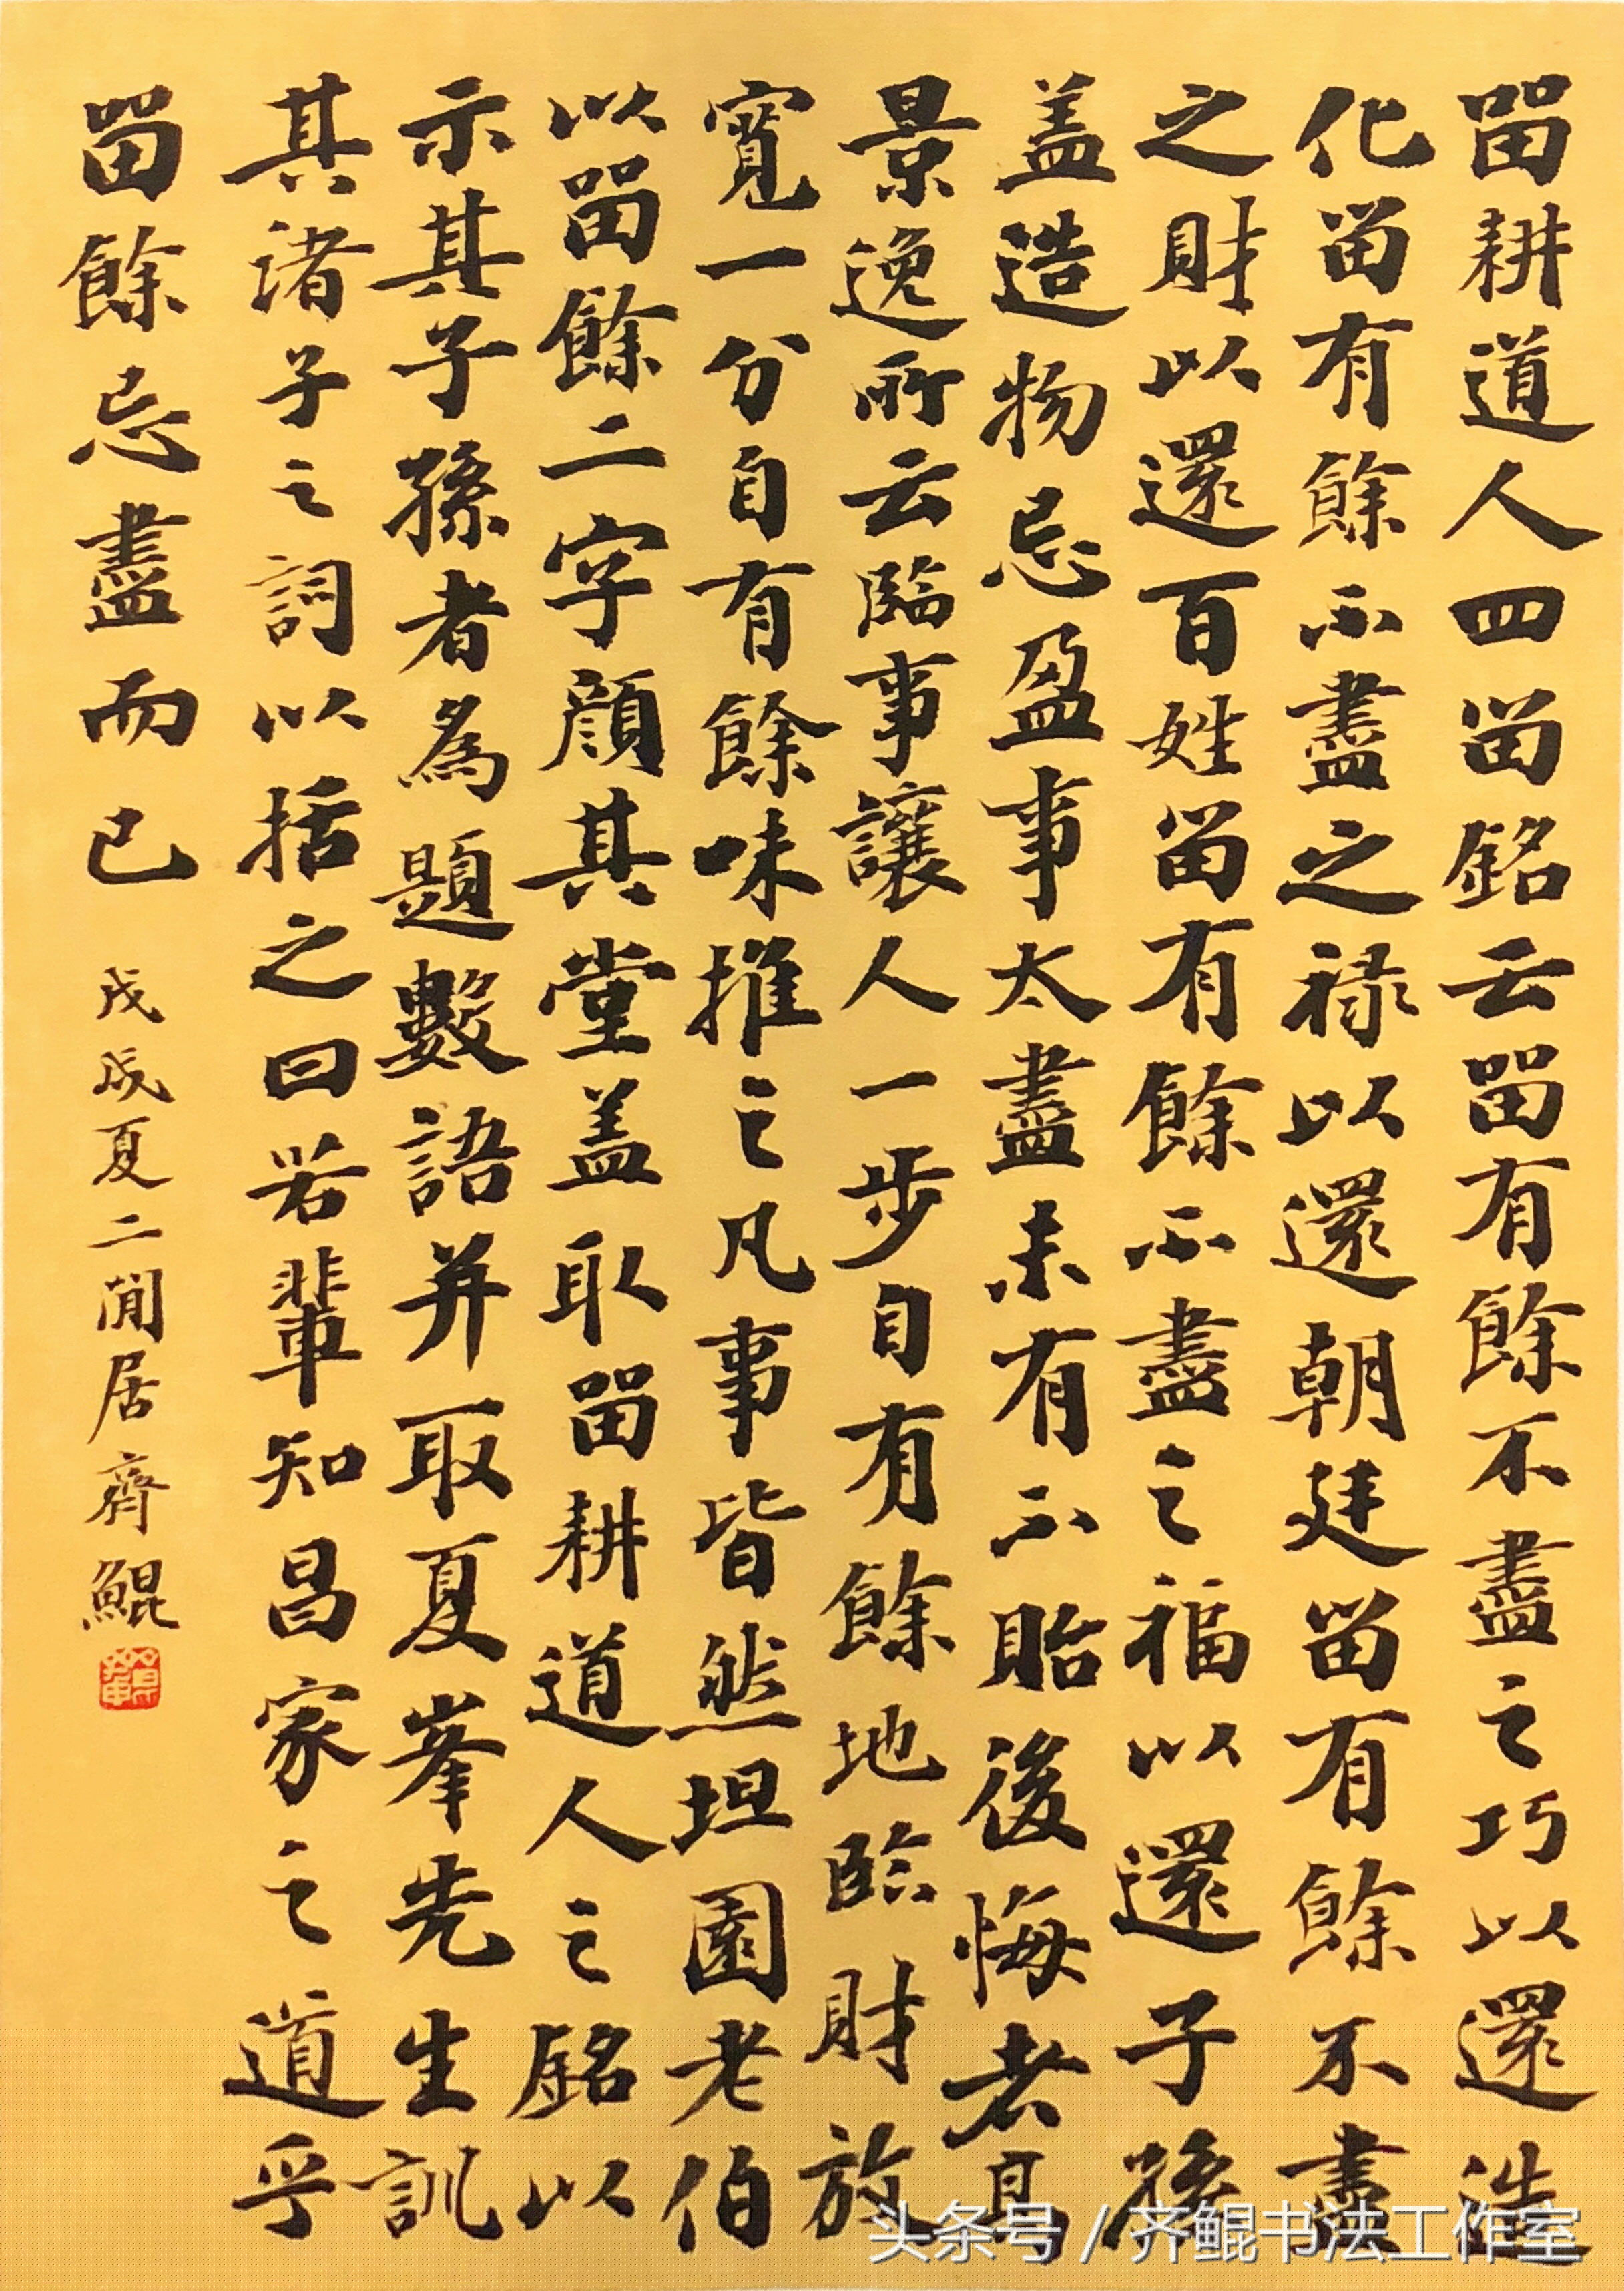 畱耕道人四留銘云畱有餘不盡之巧以還造
化留有餘不盡之禄以還朝廷留有餘不盡
之財以還百姓留有餘不盡之福以還子孫
盖造物忌盈事太盡未有不貽後悔者高
景逸所云臨事讓人一步自有餘地臨財放
寬一分自有餘味推之凡事皆然坦園老伯
以畱餘二字顔其堂盖取畱耕道人之銘以
示其子孫者為題數語并取夏峯先生訓
其諸子之詞以括之曰若輩知昌家之道乎
畱餘忌盡而已
戊戌夏二閒居齊鯤
头条号 / 齐鲲书法工作室